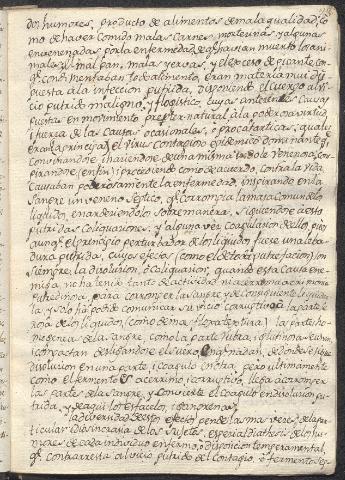 dos humores, producto de alimentos de mala qualidad, co
mo de haver comido malas Carnes, mortecinas y algunas
envenenadas por la enfermedad de q.e havian muerto los ani
males: mal pan, mala yervas, y el exceso de picante con
q.e condimentaban todo alimento, eran materia mui dis
puesta à la infeccion putrida, disponiendo el cuerpo al vi
cio putrido maligno, y flogistico, cuyas antecedentes Causas
puestas en movimiento preter-natural à la poderosa virtud
i fuerza de las Causas ocasionales, o procatarticas, qual es
era (la principal) el virus contagioso epidemico dominante q.e
Convinandose, i haviendose de una misma indole venenosa, Cons
pirando (entre si) procediendo como de acuerdo, contra la vida
Causaban poderosamente la enfermedad, inspirando en la
Sangre un veneno septico, q.e corrompia la masa Comun de lo
liquido, enardeciendolo sobre manera, siguiendose à esto
putridas Coliquaciones, y alguna vez coagulacion de ellos, pues
aunq.e el principio perturbador de los liquidos fuese una leva
dura putrida, cuyos efectos (como el de toda putrefaccion) son
siempre, la disolucion, ò Coliquacion, quando esta Causa ene
miga no ha tenido tanto de actividad ni acerrimo
putredinosa para corromper la sangre, y de consiguiente liquidar
la, y solo ha podido comunicar su vicio corruptivo à la parte se
rosa de los liquidos (como de mas pronta ruptura) la parte ho
mogenea de la sangre, como la parte fibrosa, i glutinosa se unen,
i compactan desligandose el suero q.e nadan, de donde se sigue
disolucion en una parte, i coagulo en otra, pero ultimamente
como el fermento es acerrimo, i corruptivo, llega à corromper
las partes de la Sangre, y convierte el Coagulo en disolucion pu
trida, y de aqui los estacelos, i gangrenas.
La diversidad de estos efectos pende las mas veces de la par
ticular idiosincrasia de los Sujetos, especial diathesis de los hu
mores de cada individuo enfermo, ò disposicion temperamental,
q.e contrarresta al vicio putrido del Contagio, o fermento sep